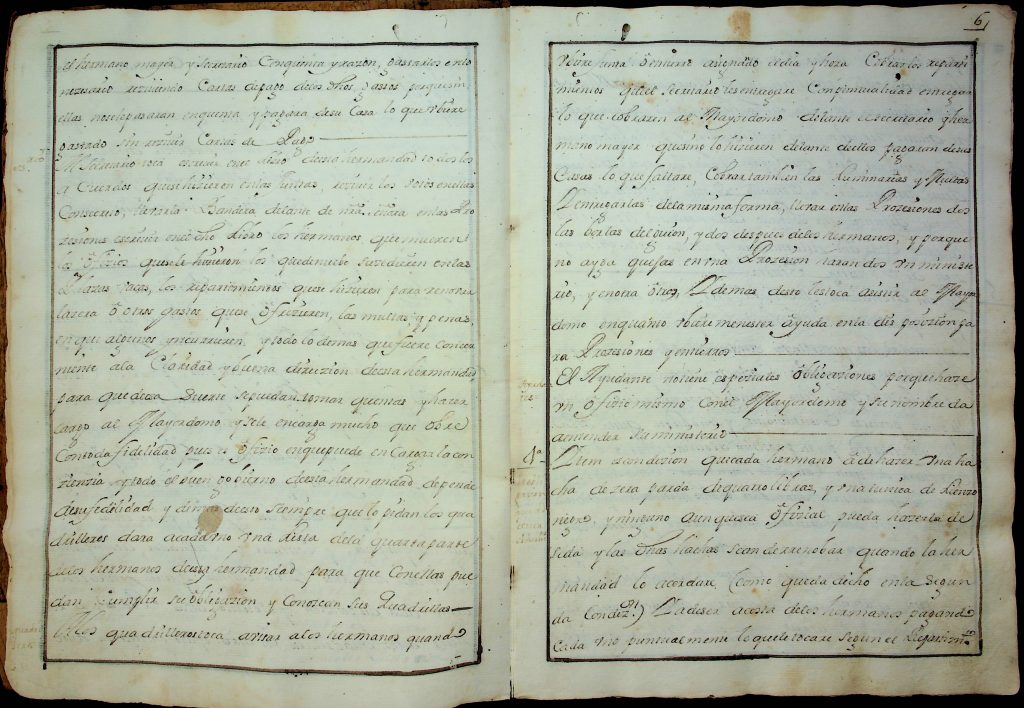 el hermano mayor y secretario Conquenta y razon, gastarlos en lo
nezesario reziuiendo Cartas de pago de los dhos gastos porque sin
ellas no sele pasaran enquenta y pagara desu Casa lo que Vbiere
gastado sin reziuir Cartas de Pago
Al Secretario toca escriuir en este libro desta hermandad todos los
a Cuerdos que se hizieren en las Juntas, reziuir los votos en ellas
lleuara la Bandera delante de nra señora en las Pro
zesiones escriuir en dho libro los hermanos que mueren
los ofizios que se le hizieron los que de nuebo suzedieren en las
Plazas, los repartimientos que se hizieren para renobar
la zera o otros gastos que se ofrezieren, las multas y penas
en que algunos yncurrieren, y todo lo demas que fuere conue
niente a la Claridad y buena direczion desta hermandad
para que desa suerte se puedan tomar quentas y hazer
cargo al Mayordomo, y sele encarga mucho que obre
Con toda fidelidad pues es ofizio en que puede en Cargar la con
zienzia y todo el buen gobierno desta hermandad depende
desu fidelidad y demas desto siempre que lo pidan los qua
drilleros dara acada vno vna lista dela quarta parte
delos hermanos desta hermandad para que Conellas pue
dan Cumplir su obligazion y Conozcan sus quadrillas
A los quadrilleros toca avisar a los hermanos quando
6
Vbiere Junta o entierro asignado el dia y hora Cobrar los reparti
mientos que el secretario les entregare Con puntualidad entregar
lo que cobraren al Mayordomo delante el secretario y her
mano mayor que si no lo hizieren delante de ellos pagaran de sus
Casas lo que faltare, Cobrar tambien las luminarias y Multas
y Entregarlas dela misma forma, lleuar en las Prozesiones dos
las borlas del guion, y dos despues delos hermanos, y porque
no ayga quejas en vna Prozesion haran dos vn ministe
rio, y en otra otros, Y demas desto les toca asistir al Mayor
domo en quanto Vbiere menester ayuda en la disposizion pa
ra Prozesiones y entierros
El Ayudante no tiene espeziales obligaziones porque haze
vn ofizio mismo Con el Mayordomo y su nombre da
a entender su ministerio
4ª
Ytem es condizion que cada hermano a de hazer vna ha
cha de zera parda de quatro libras, y vna tunica de lienzo
negro, y ninguno aunque sea ofizial pueda hazerla de
seda y las dhas hachas sean de rrenobar quando la her
mandad lo acordare (como queda dicho en la segun
da Condizn) Y a de ser a costa delos hermanos pagando
Cada vno puntualmente lo que le tocare segun el Repartimto